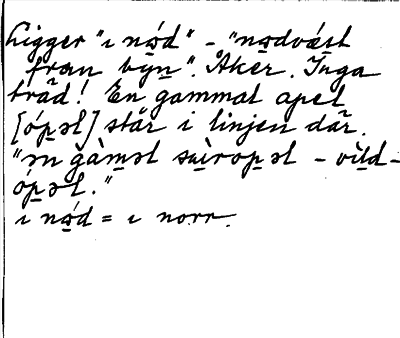 Ligger "ı nǿ̱d" - "nø̱dvǽst
från byn̲". Åker. Inga
träd! En gammal apel
[óp̲əl] står i linjen där.
"ən gàm̲əl sùrop̲əl - vìl̲d-
óp̲əl."
ı nǿ̱d = ı norr.